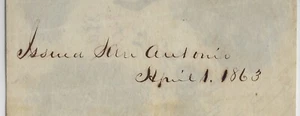 Issued San Antonio
April 1. 1863